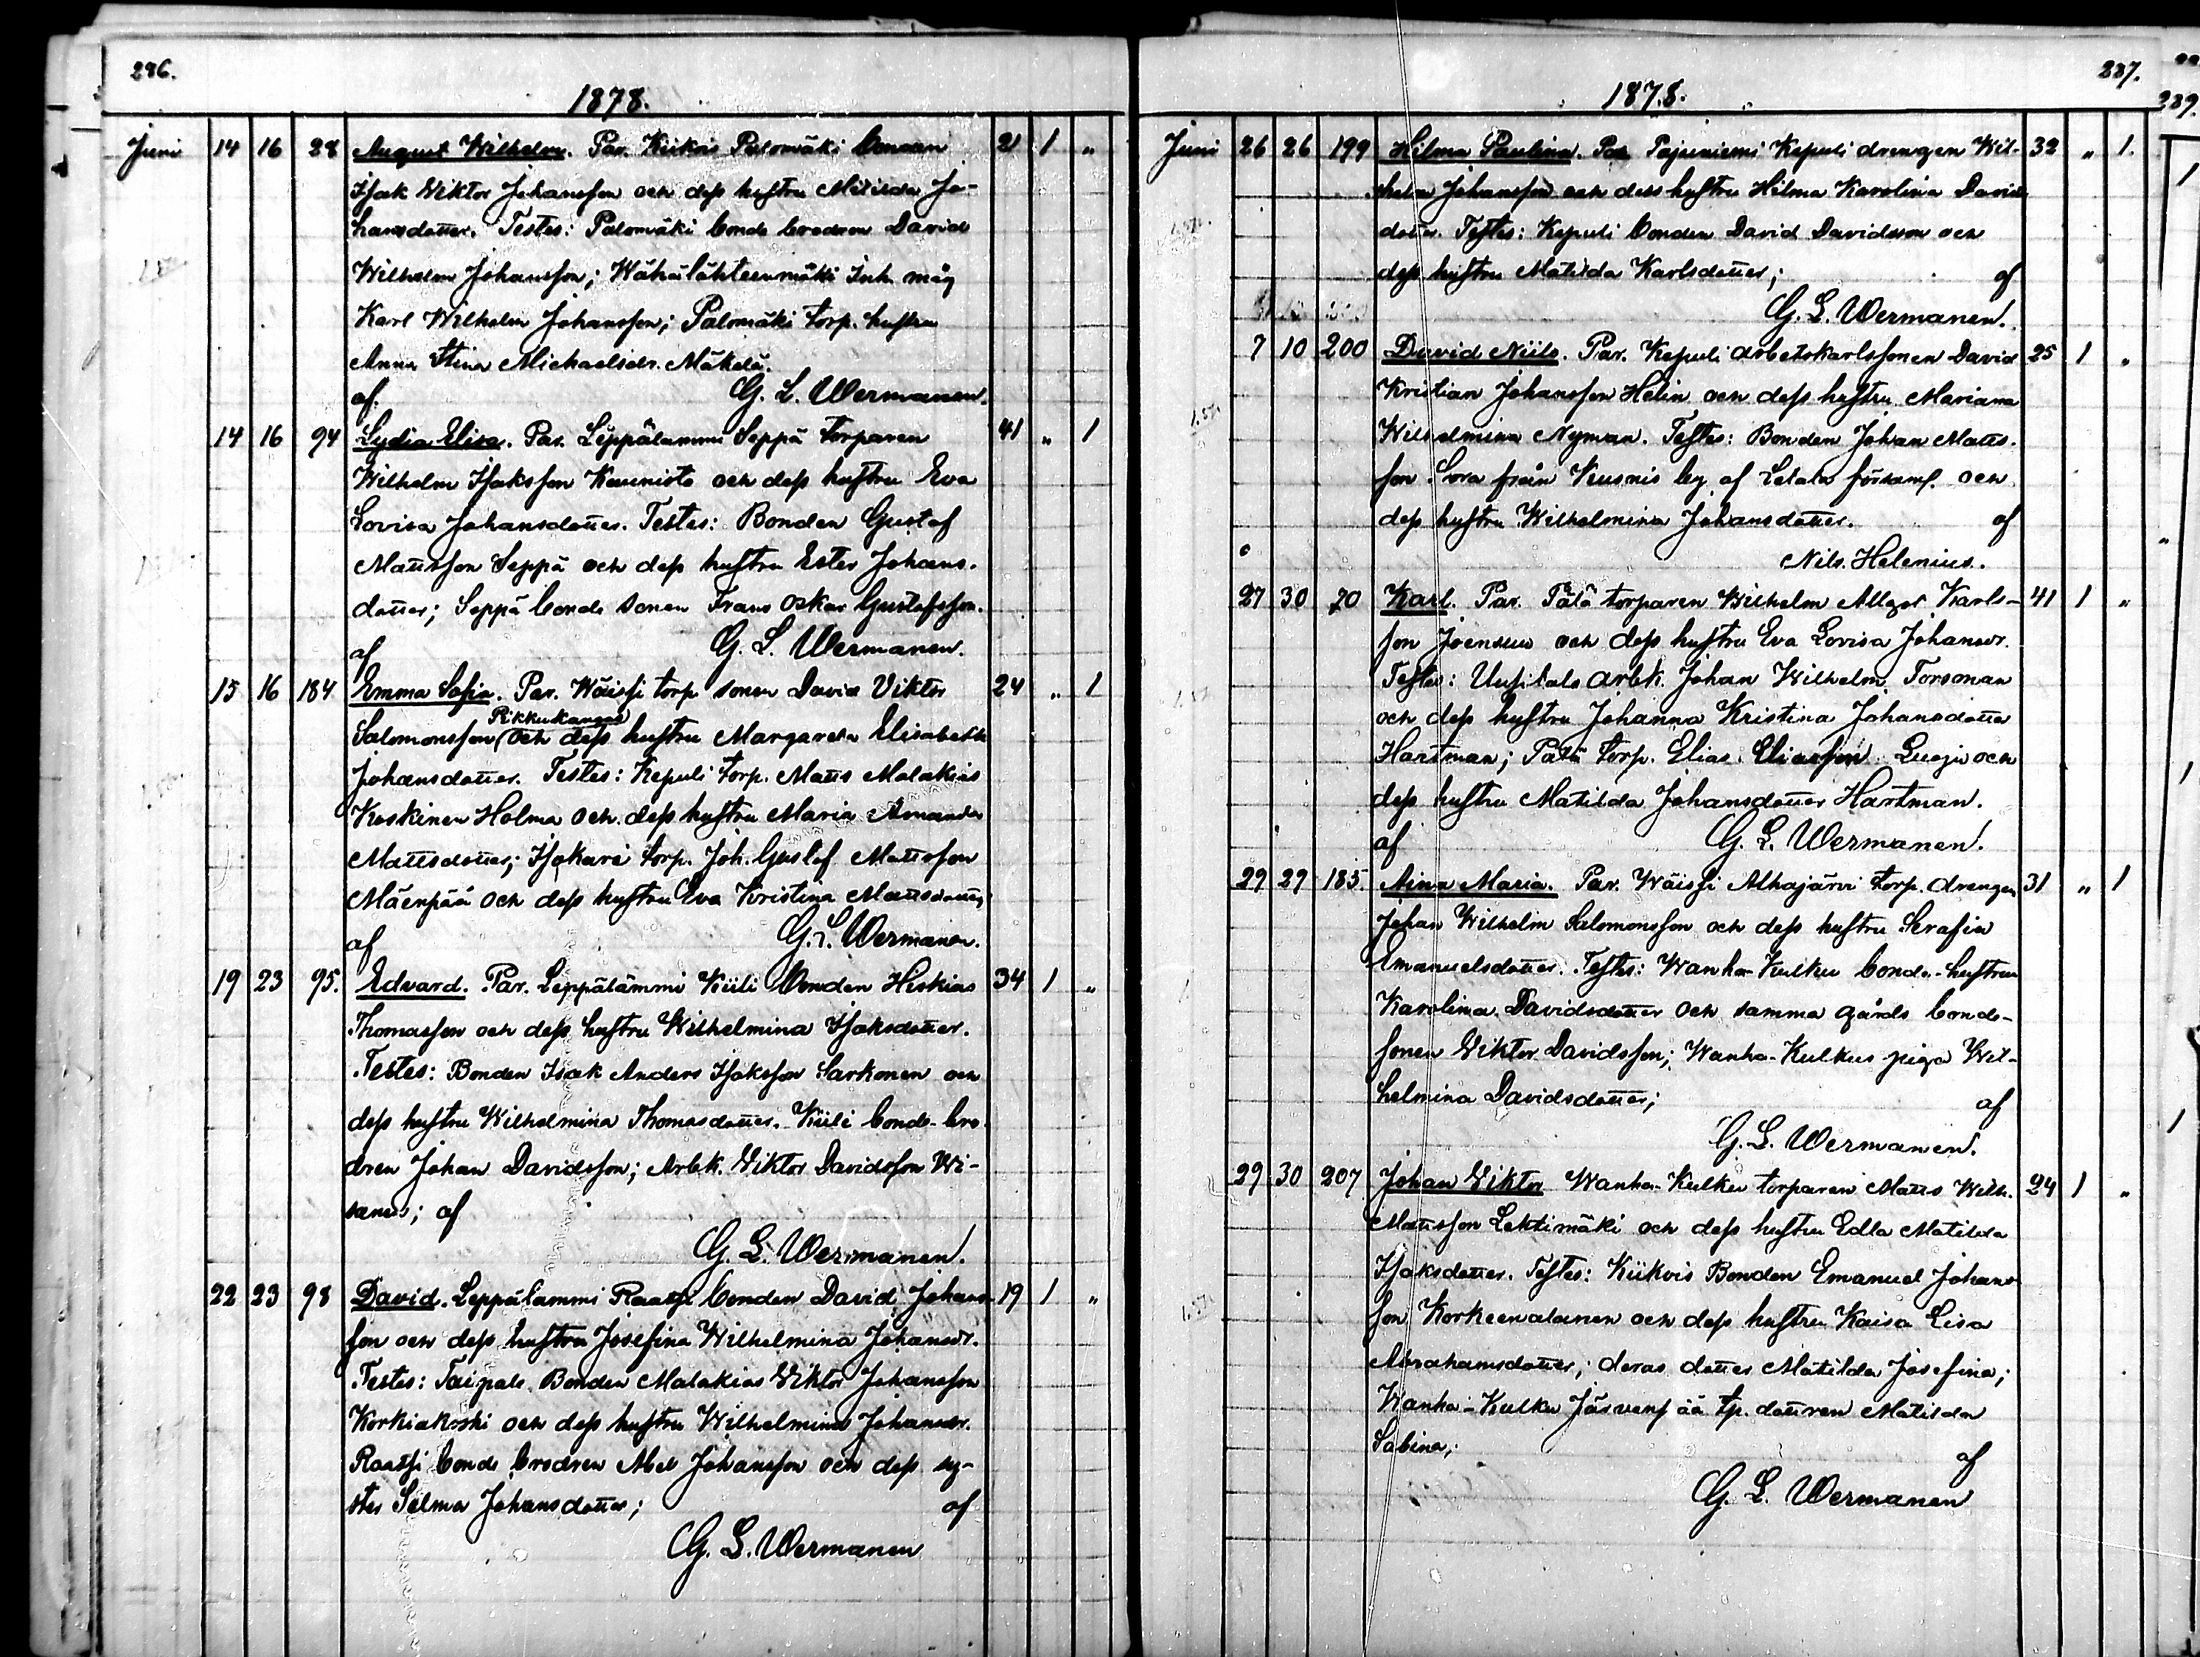 296.
1878.
Juni 14 16 28 August Wilhelm. Par. Kiikois Palomäki bonden 21 1 "
Isak Viktor Johansson och dess hustru Matilda Jo-
hansdotter. Testes: Palomäki bonde brodren David
Wilhelm Johansson; Wähälähteenmäki Inh. måg
Karl Wilhelm Johansson; Palomäki torp. hustru
Anna Stina Michaelsdr. Mäkelä.
af G. L. Wermanen.
14 16 94 Lydia Elisa. Par. Leppälammi Seppä torparen 41 " 1
Wilhelm Isaksson Kaunisto och dess hustru Eva
Lovisa Johansdotter. Testes: Bonden Gustaf
Mattsson Seppä och dess hustru Ester Johans-
dotter; Seppä bonde sonen Frans Oskar Gustafsson.
af G. L. Wermanen.
15 16 184 Emma Sofia. Par. Wäissi torp sonen David Viktor 24 " 1
Pikkukangas
Salomonsson (och dess hustru Margareta Elisabeth
Johansdotter. Testes: Kepuli torp. Matts Malakias
Koskinen Holma och dess hustru Maria Amanda
Mattsdotter; Isakari torp. Joh. Gustaf Mattsson
Mäenpää och dess hustru Eva Kristina Mattsdotter;
af G. L. Wermanen.
19 23 95. Edvard. Par. Leppälämmi Kiili bonden Heskias 34 1 "
Thomasson och dess hustru Wilhelmina Isaksdotter.
Testes: Bonden Isak Anders Isaksson Sarkonen och
dess hustru Wilhelmina Thomasdotter. Kiili bonde-bro
dren Johan Davidsson; Arbk. Viktor Davidsson Wi-
sanus; af
G. L. Wermanen.
22 23 98 David. Leppälammi Raassi bonden David Johans- 19 1 "
son och dess hustru Josefina Wilhelmina Johansdr.
Testes: Taipale Bonden Malakias Viktor Johansson
Korkiakoski och dess hustru Wilhelmina Johansdr.
Raassi bonde brodren Abel Johansson och dess sy-
ster Selma Johansdotter; af
G. L. Wermanen
287.
1878.
Juni 26 26 199 Hilma Paulina. Par Pajuniemi Kepuli drengen Wil- 32 " 1.
helm Johansson och dess hustru Hilma Karolina Davids
dotter. Testes: Kepuli bonden David Davidsson och
dess hustru Matilda Karlsdotter; af
G. L. Wermanen.
7 10 200 David Niilo. Par. Kepuli arbetskarlssonen David 25 1 "
Kristian Johansson Helin och dess hustru Mariana
Wilhelmina Nyman. Testes: Bonden Johan Matts-
son Sora från Kusnis by af Letala församl. och
dess hustru Wilhelmina Johansdotter. af
Nils Helenius.
27 30 70 Karl. Par. Pätä torparen Wilhelm Allgot Karls- 41 1 "
son Joensuu och dess hustru Eva Lovisa Johansdr.
Testes: Uusitalo arbk. Johan Wilhelm Forsman
och dess hustru Johanna Kristina Johansdotter
Hartman; Pätä torp. Elias Eliasson Luoja och
dess hustru Matilda Johansdotter Hartman.
af G. L. Wermanen.
29 29 185. Aina Maria. Par. Wäissi Alhajärvi torp. drengen 31 " 1
Johan Wilhelm Salomonsson och dess hustru Serafia
Emanuelsdotter. Testes: Wanha Kulku bonde-hustrun
Karolina Davidsdotter och samma gårds bonde-
sonen Viktor Davidsson; Wanha-Kulkus piga Wil-
helmina Davidsdotter; af
G. L. Wermanen.
29 30 207 Johan Viktor Wanha-Kulku torparen Matts Wilh. 24 1 "
Mattsson Lehtimäki och dess hustru Edla Matilda
Isaksdotter. Testes: Kiikois Bonden Emanuel Johans
son Korkeenalanen och dess hustru Kaisa Lisa
Abrahamsdotter; deras dotter Matilda Josefina;
Wanha-Kulku Järvenpää tp. dottren Matilda
Sabina; af
G. L. Wermanen
289.